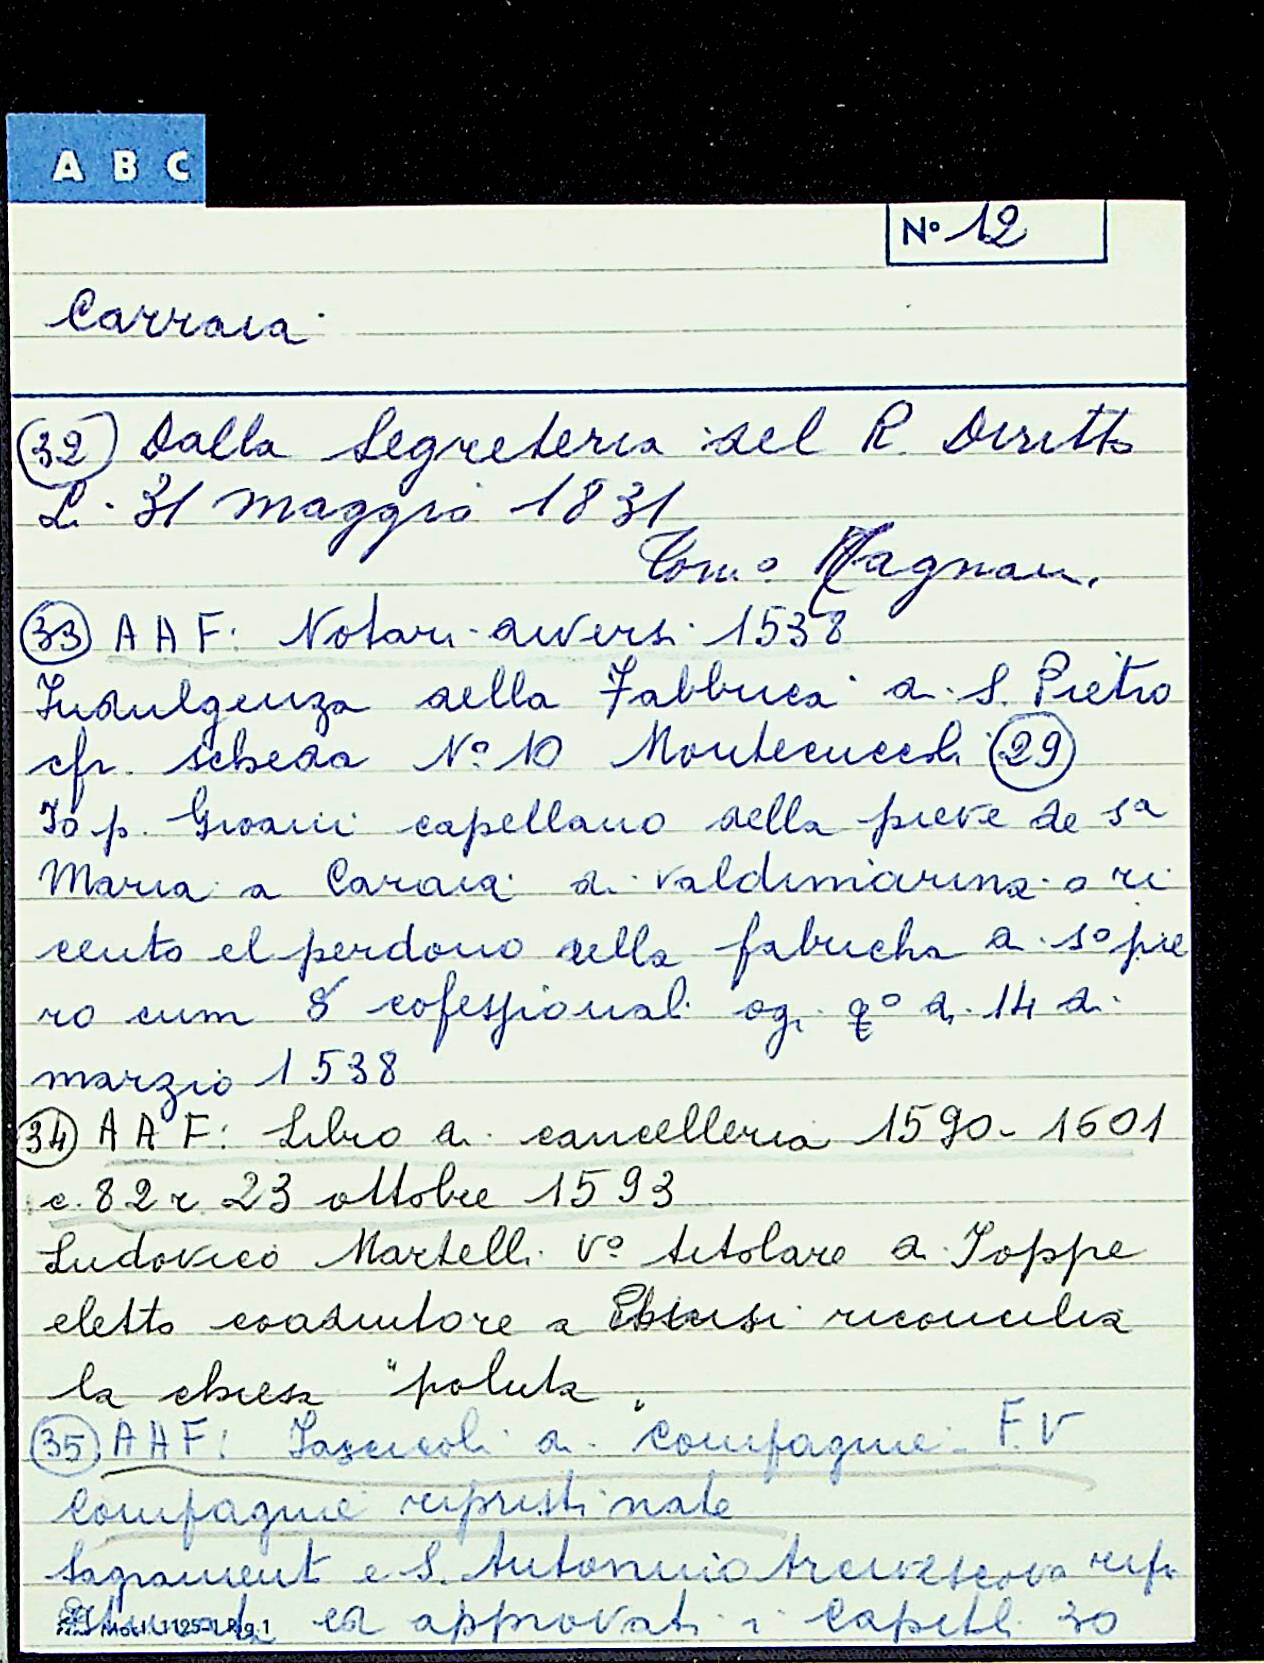 A B C
N° 12
Carraia
(32) Dalla Segreteria del R. Diritto
Li 31 maggio 1831
Tom.o Magnani.
(33) AAF: Notari diversi 1538
Indulgenza della Fabbrica di S. Pietro
cfr. scheda N° 10 Montecuccoli (29)
Io p. Giovanni capellano della pieve de Sa
Maria a Caraia di Valdimarina o ri
ceuto el perdono della fabricha di S° pie
ro cum 8 cofessionali ogi q° dì 14 di
marzio 1538
(34) AAF: Libro di cancelleria 1590-1601
c. 82 r 23 ottobre 1593
Ludovico Martelli V° titolare di Joppe
eletto coadiutore a Chiusi riconcilia
la chiesa "poluta"
(35) AAF: Fascicoli di Compagnie F. V
Compagnie ripristinate
Sagramento e S. Antonino Arcivescovo ripri
ed approvati i Capitoli 30
Mod. 11251 Rg. 1